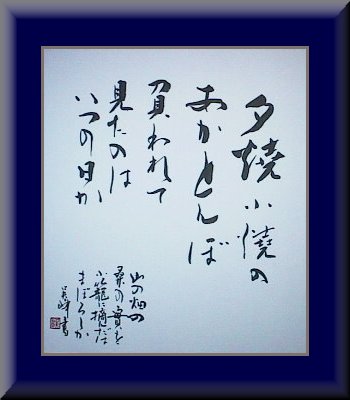 夕焼小焼の
あかとんぼ
負われて
見たのは
いつの日か
山の畑の
桑の実を
小籠に摘だは
まぼろしか